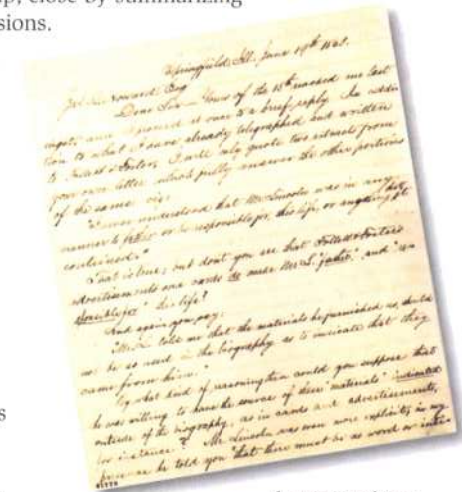 up, close by summarizing
sions.
Springfield, Ill. June 19th 18
Esq
Dear Sir— Yours of the 15th reached me last
night, and I proceed at once to a brief reply. In addi
tion to what I have already telegraphed and written
to Follett & Foster, I will only quote two extracts from
your own letter which fully answer the other portions
of the same viz:
"I never understood that Mr Lincoln was in any
manner to father or be responsible for, this life, or anything it
contained."
That is true; but don't you see that Follett & Fosters
advertisements and cards do make Mr L. "father," and "res
ponsible for" his life?
And again you say:
"Mr told me that the materials he furnished us, should
not be so used in the biography as to indicate that they
came from him."
By what kind of reasoning then could you suppose that
he was willing to have the source of these "materials" indicated
outside of the biography, as in cards and advertisements,
for instance? Mr Lincoln was even more explicit; in my
presence he told you "that there must be no word or inti
s